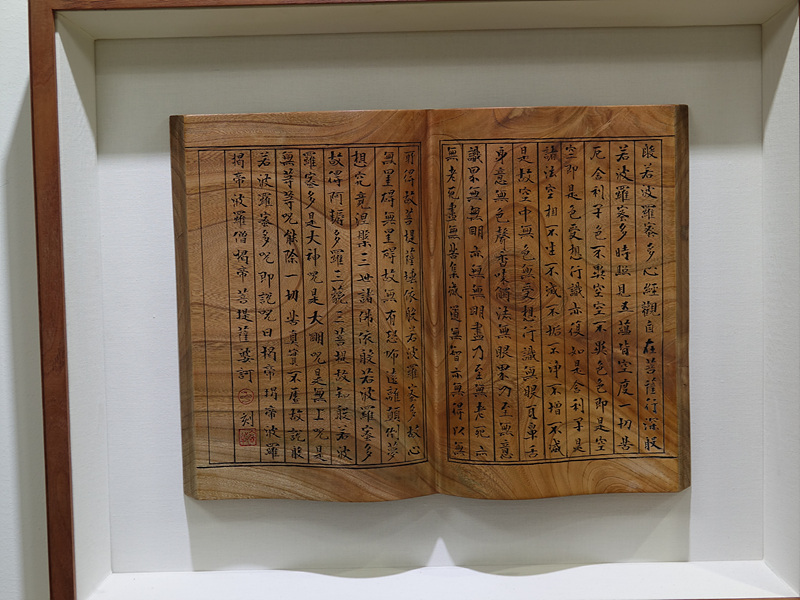 般若波羅蜜多心經觀自在菩薩行深般
若波羅蜜多時照見五蘊皆空度一切苦
厄舍利子色不異空空不異色色即是空
空即是色受想行識亦復如是舍利子是
諸法空相不生不滅不垢不淨不增不減
是故空中無色無受想行識無眼耳鼻舌
身意無色聲香味觸法無眼界乃至無意
識界無無明亦無無明盡乃至無老死亦
無老死盡無苦集滅道無智亦無得以無
所得故菩提薩埵依般若波羅蜜多故心
無罣礙無罣礙故無有恐怖遠離顛倒夢
想究竟涅槃三世諸佛依般若波羅蜜多
故得阿耨多羅三藐三菩提故知般若波
羅蜜多是大神呪是大明呪是無上呪是
無等等呪能除一切苦真實不虛故說般
若波羅蜜多呪即說呪曰揭帝揭帝波羅
揭帝波羅僧揭帝菩提薩婆訶 刻